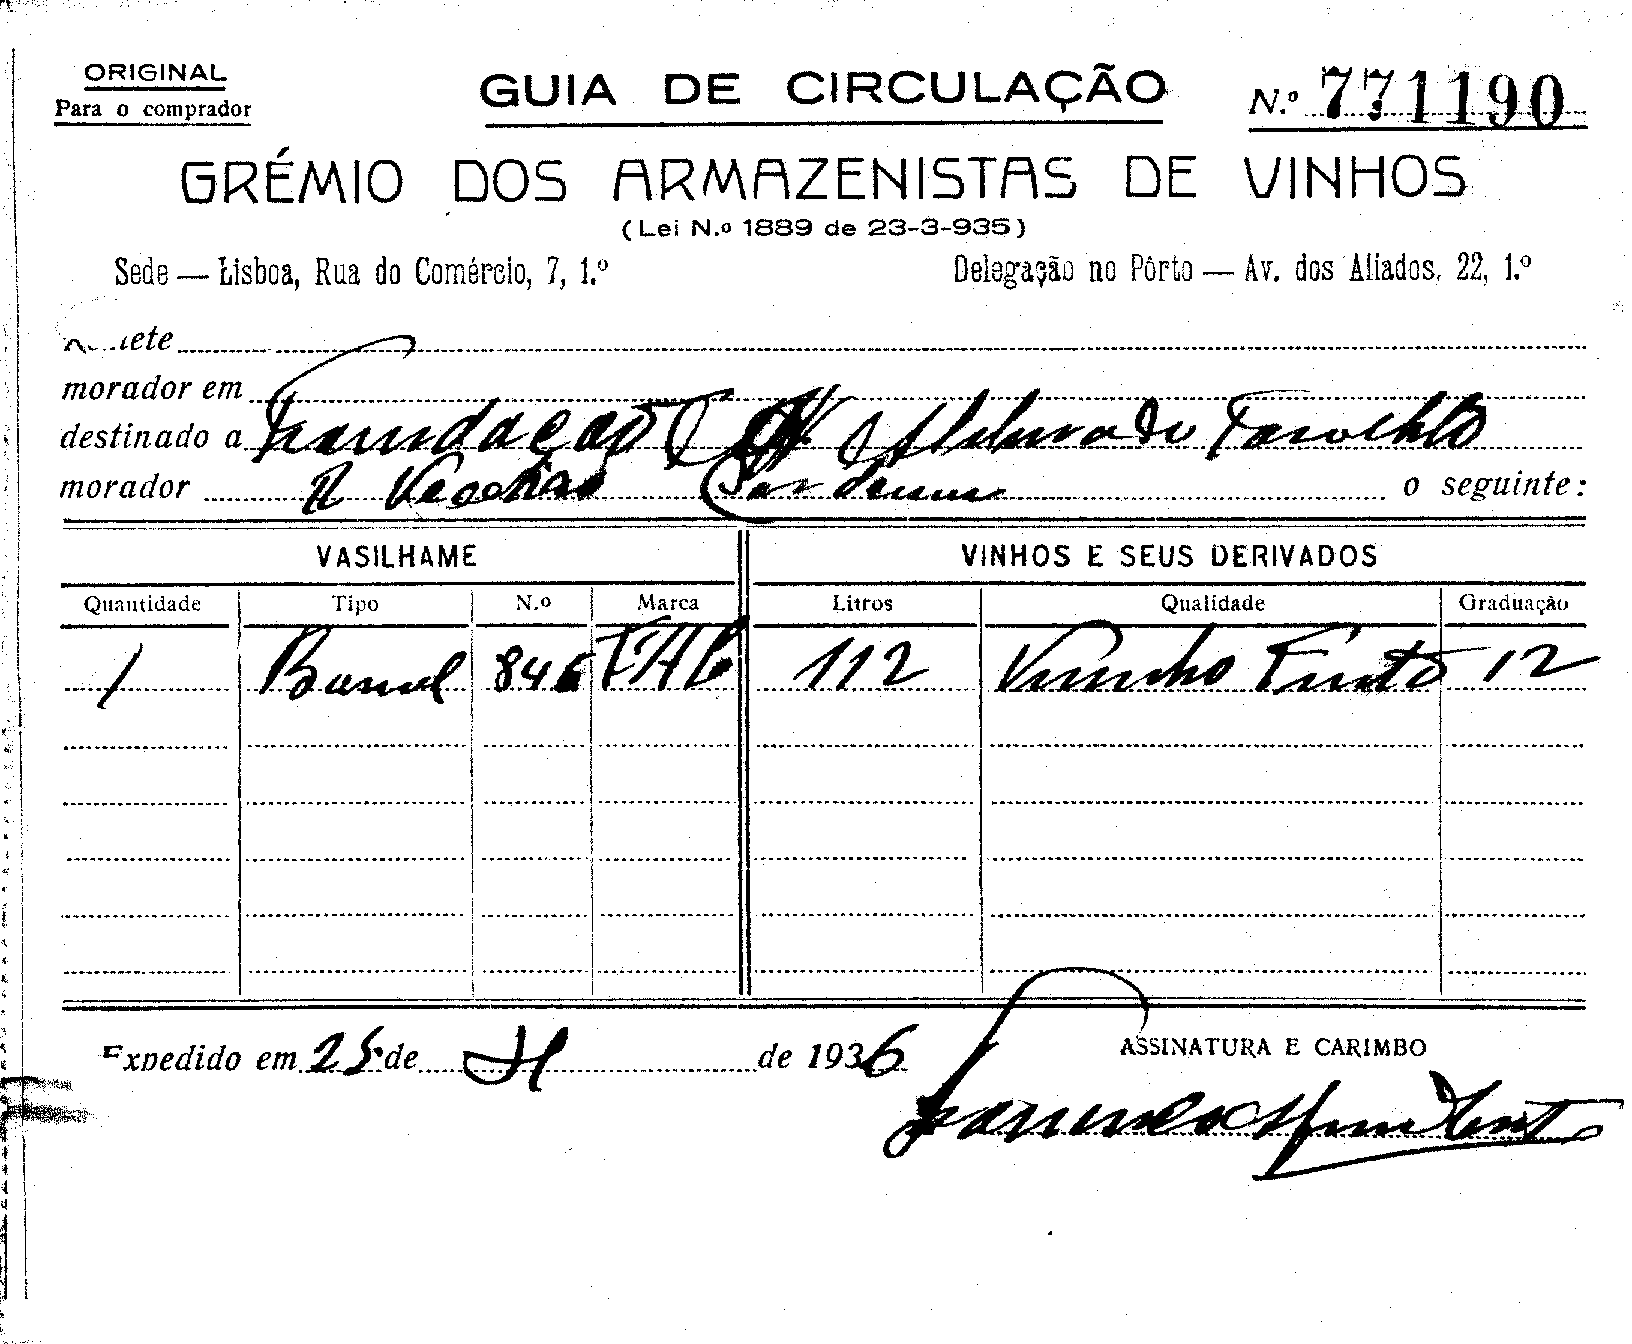 ORIGINAL
Para o comprador
GUIA DE CIRCULAÇÃO
N.º 771190
GRÉMIO DOS ARMAZENISTAS DE VINHOS
(Lei N.º 1889 de 23-3-935)
Sede — Lisboa, Rua do Comércio, 7, 1.º
Delegação no Pôrto — Av. dos Aliados, 22, 1.º
morador em
destinado a
morador o seguinte:
VASILHAME VINHOS E SEUS DERIVADOS
Quantidade Tipo N.º Marca Litros Qualidade Graduação
1 Barril 846 112 Vinho Tinto 12
Expedido em 25 de de 1936
ASSINATURA E CARIMBO